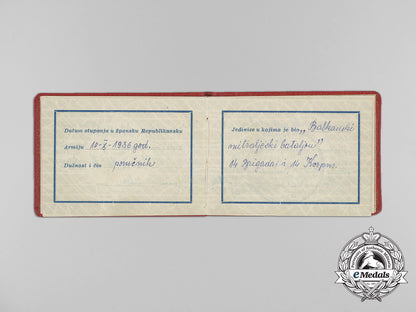 Datum stupanja u špansku Republikansku
Armiju 10-X-1936 god.
Dužnost i čin poručnik
Jedinice u kojima je bio „Balkanski
mitraljeski bataljon"
14 Brigada i 14 Korpus
eMedals